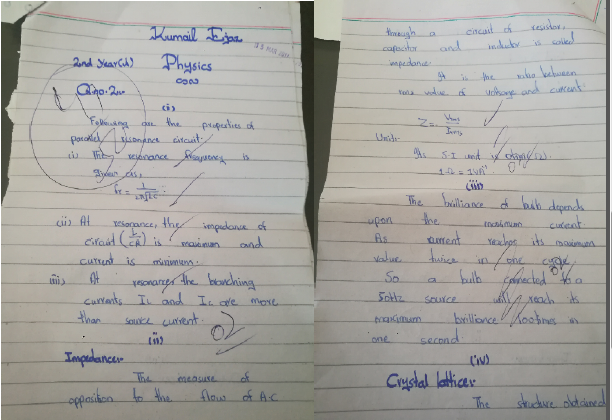 Kumail Ejaz
2nd Year(A) Physics
Q.no.2
(i)
Following are the properties of
parallel resonance circuit.
(i) The resonance frequency is
given as,
fr = 1/2π√LC
(ii) At resonance, the impedance of
circuit (L/CR) is maximum and
current is minimum.
iii) At resonance the branching
currents IL and IC are more
than source current.
02
(ii)
Impedance:
The measure of
opposition to the flow of A.C
through a circuit of resistor,
capacitor and inductor is called
impedance.
It is the ratio between
rms value of voltage and current.
Z = Vrms/Irms
Unit:
Its S.I unit is ohm(Ω).
1Ω = 1VA⁻¹
(iii)
The brilliance of bulb depends
upon the maximum current.
As current reaches its maximum
value twice in one cycle.
So a bulb connected to a
50Hz source will reach its
maximum brilliance 100times in
one second.
(iv)
Crystal lattice:
The structure obtained